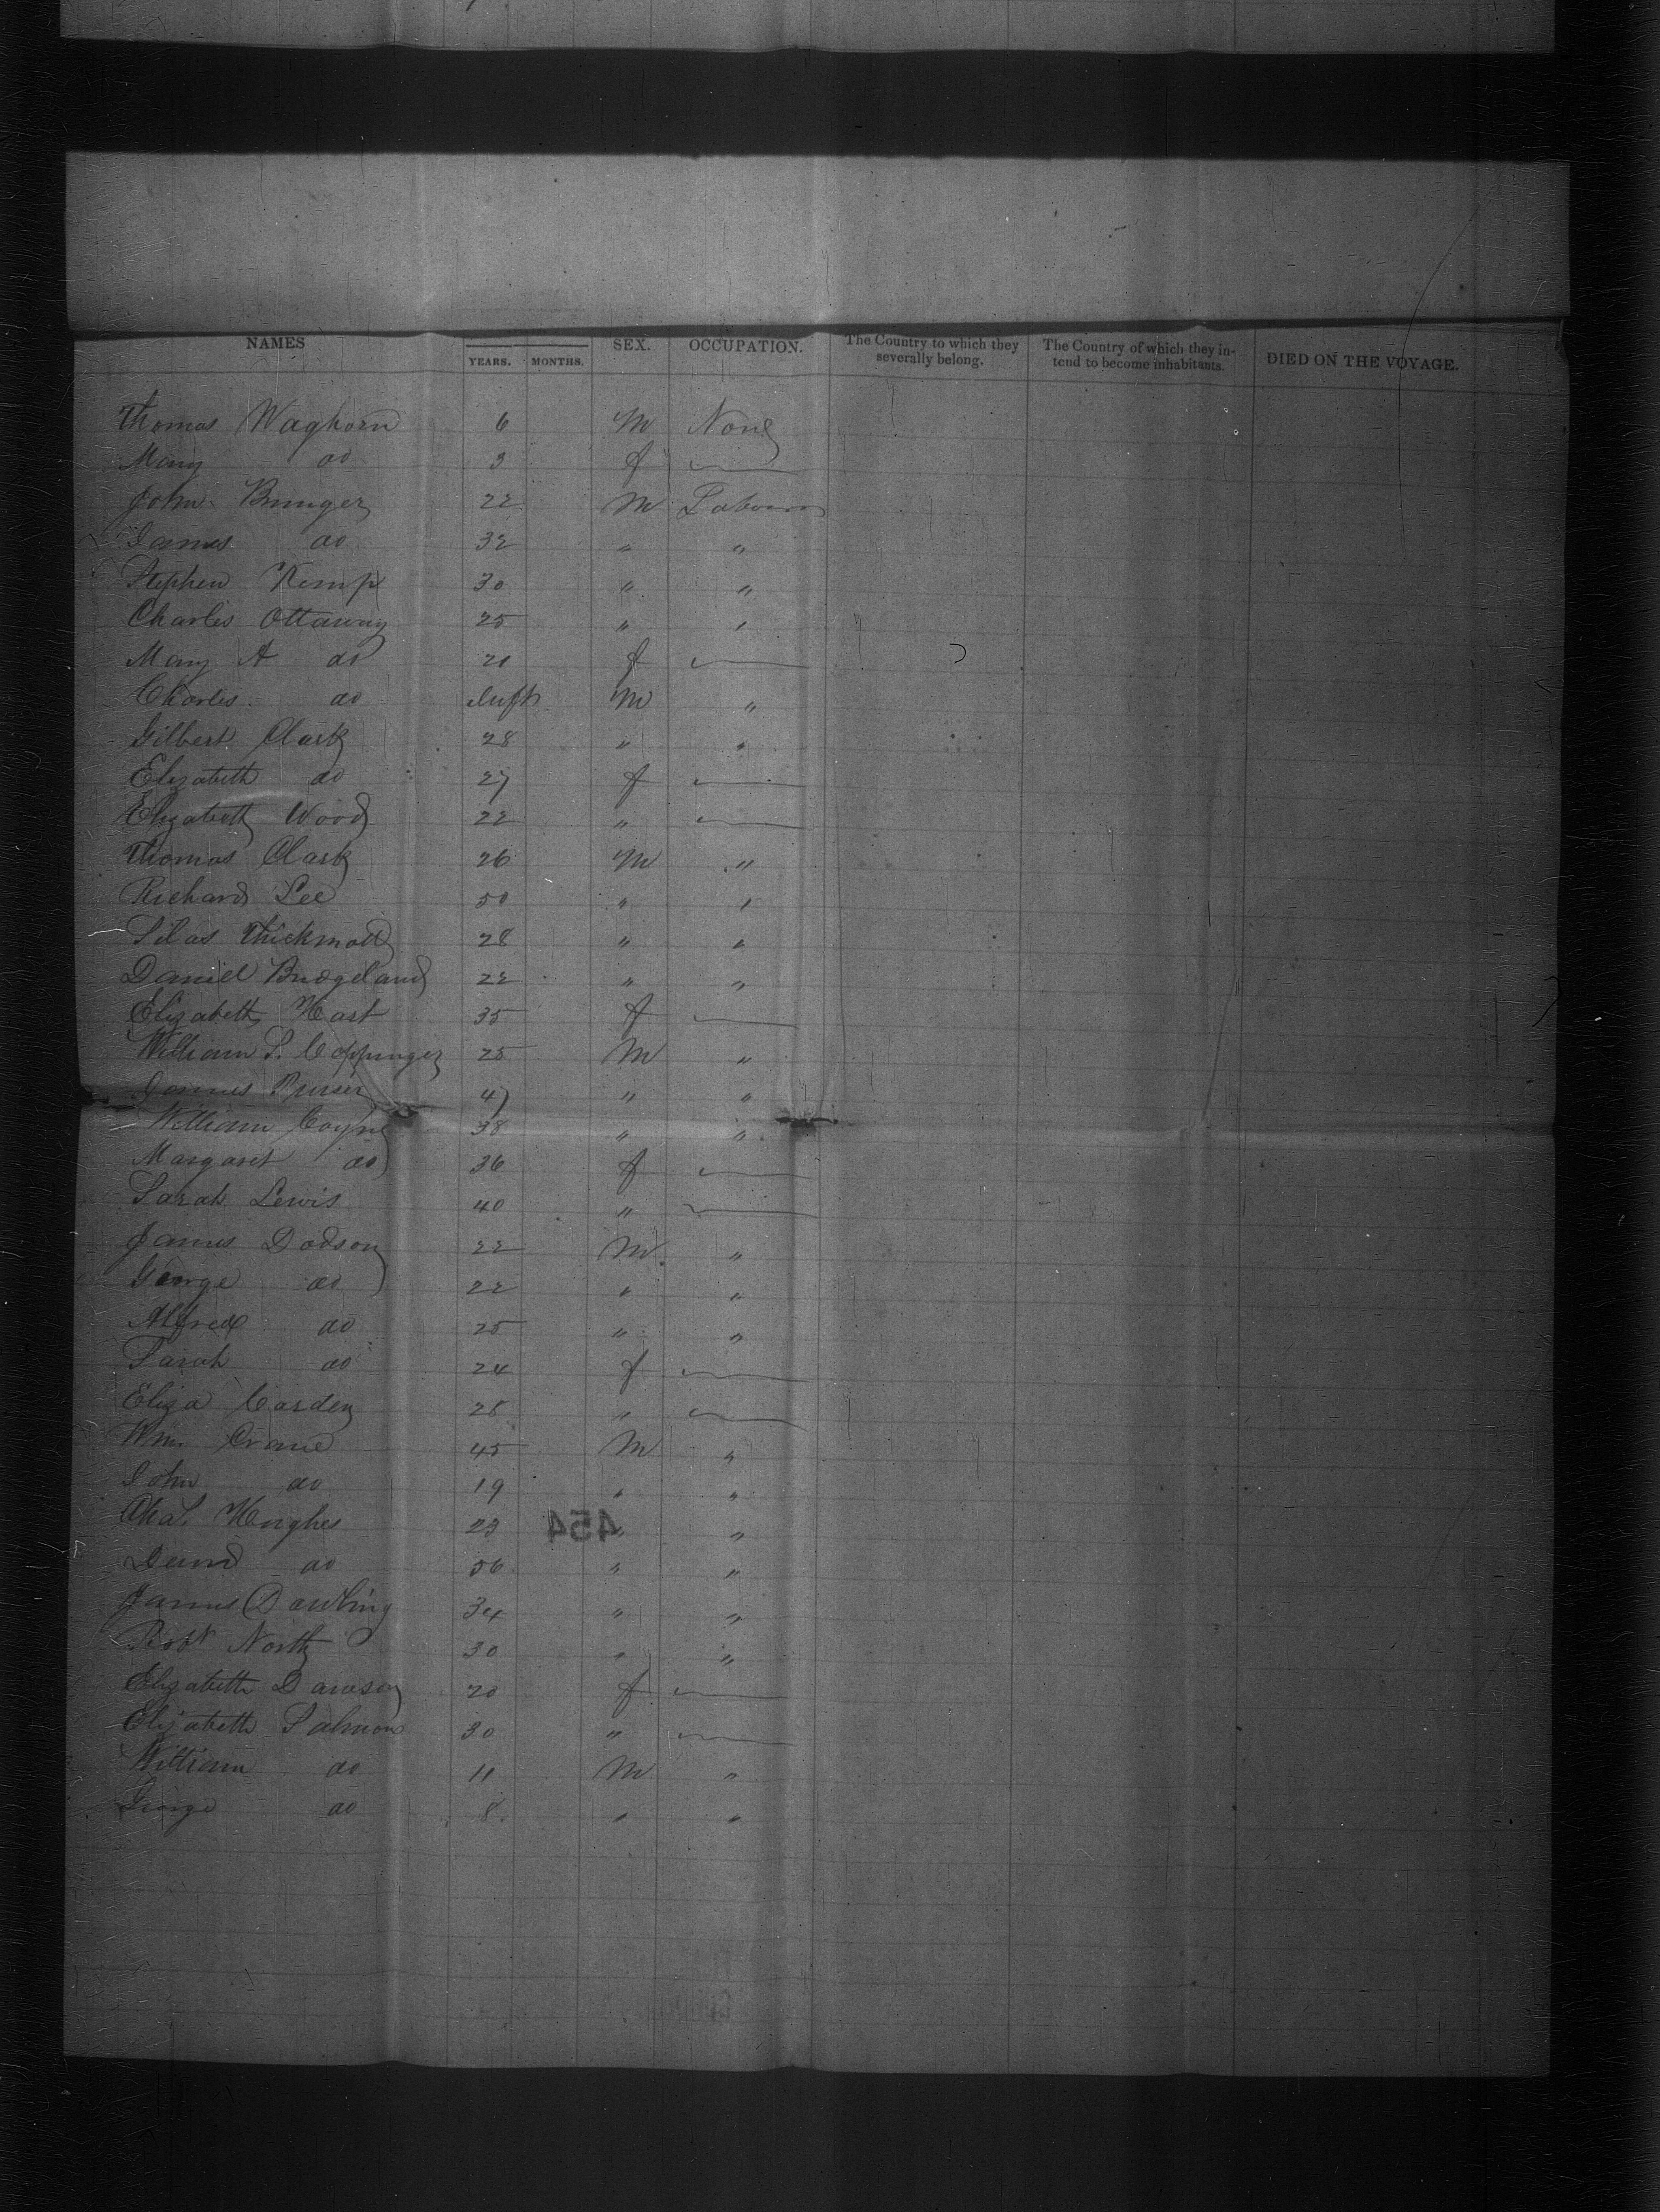 NAMES YEARS. MONTHS. SEX. OCCUPATION. The Country to which they severally belong. The Country of which they in-tend to become inhabitants. DIED ON THE VOYAGE.
Thomas Waghorn 6 M None
Mary do 3 f
John Bunger 22 M Labourer
James do 32 " "
Stephen Kemp 30 " "
Charles Ottaway 25 " "
Mary A do 21 f
Charles do Inft M "
Gilbert Clark 28 " "
Elizabeth do 27 f
Elizabeth Wood 22 "
Thomas Clark 26 M "
Richard Lee 50 " "
Silas Thickmott 28 " "
Daniel Bridgeland 22 " "
Elizabeth Hart 35 f
William S. Coppinger 25 M "
James 47 " "
William Coyne 38 " "
Margaret do 36 f
Sarah Lewis 40 "
James Dodson 22 M "
George do 22 " "
Alfred do 25 " "
Sarah do 24 f
Eliza Carden 28 "
Wm. Crane 45 M "
John do 19 " "
Chas. Hughes 23 " "
454
David do 56 " "
James Dowling 34 " "
Robt North 30 " "
Elizabeth Dawson 20 f
Elizabeth Salmon 30 "
William do 11 M "
George do 8 " "